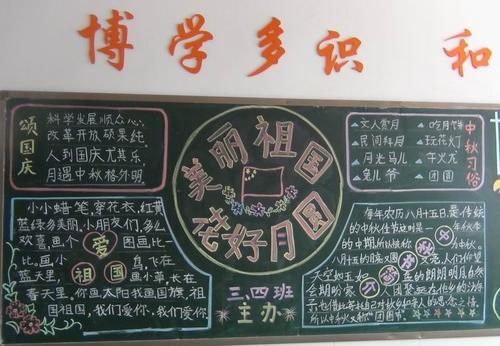 博学多识 和
颂国庆
科学发展顺众心
改革开放硕果纯
人到国庆尤其乐
月遇中秋格外明
小小蜡笔,穿花衣,红黄
蓝绿多美丽,小朋友们,多么
欢喜画个爱图画比一
比。画小鸟飞在
蓝天里,祖国画小草,长在
春天里,你画太阳我画国旗,祖
国祖国,我们爱你,我们爱你
美丽祖国
花好月圆
三、四班
主办
中秋习俗
文人赏月
吃月饼
民间拜月
玩花灯
月光马儿
舞火龙
兔儿爷
团圆
每年农历八月十五日,是传统
的中秋佳节这时是一年秋季
的中期,所以被称为中秋。
八月十五的月亮又圆又亮,人们仰望
天空如玉如的朗朗明月自然
会期盼家人团聚远在他乡的游
子,也借此寄托自己对故乡和亲人的思念之情。
所以中秋又称“团圆节”